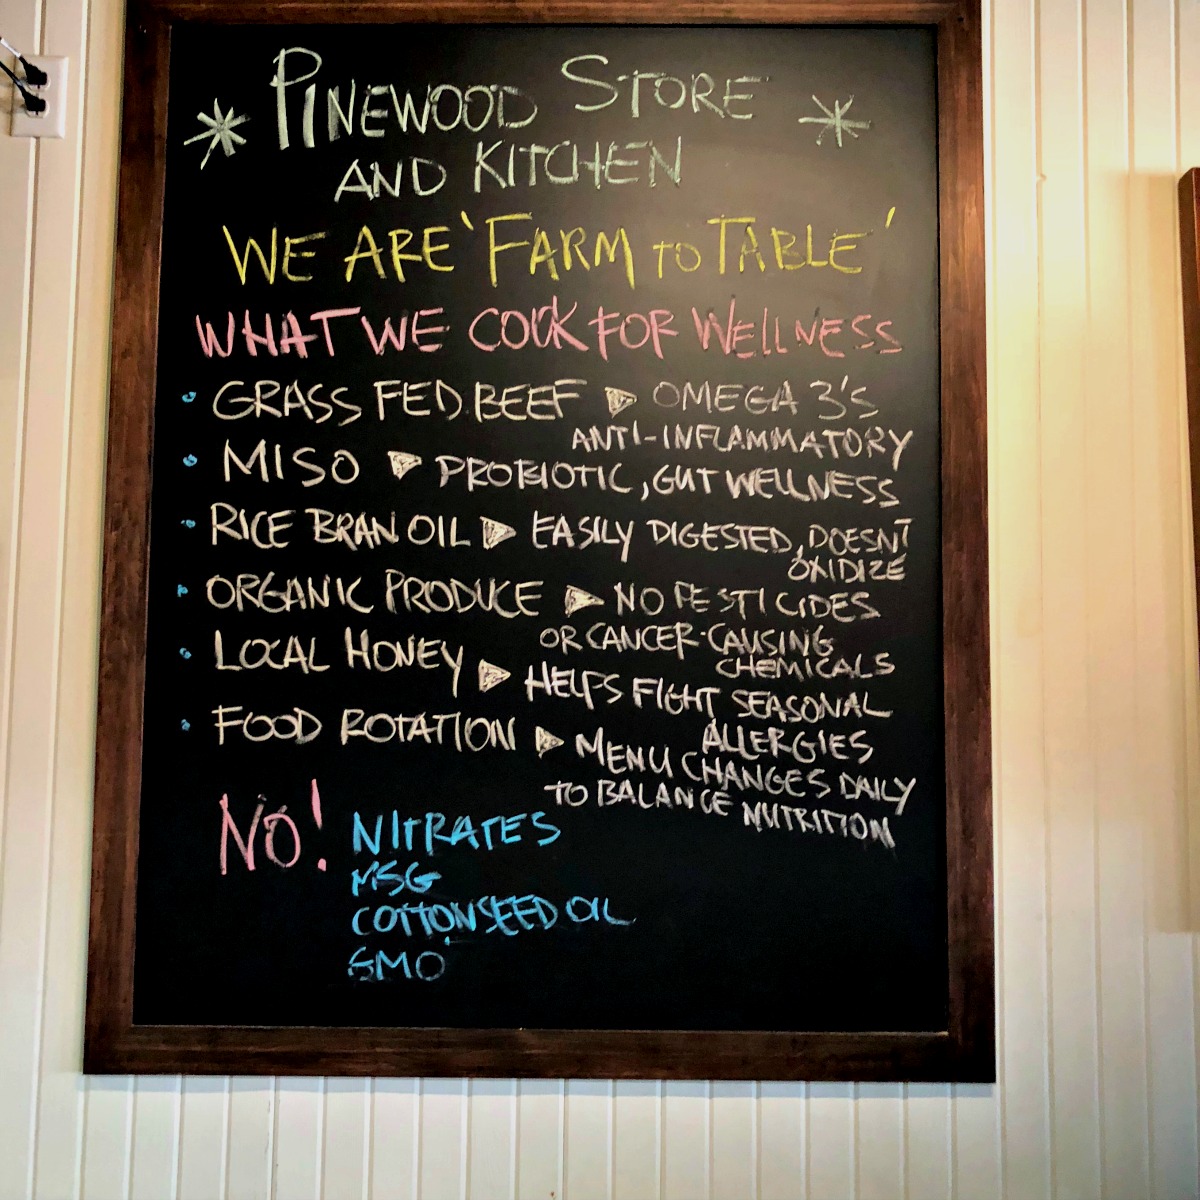 * PINEWOOD STORE *
AND KITCHEN
WE ARE 'FARM TO TABLE'
WHAT WE COOK FOR WELLNESS
• GRASS FED BEEF ▶ OMEGA 3'S
ANTI-INFLAMMATORY
• MISO ▶ PROBIOTIC, GUT WELLNESS
• RICE BRAN OIL ▶ EASILY DIGESTED, DOESN'T
OXIDIZE
• ORGANIC PRODUCE ▶ NO PESTICIDES
OR CANCER-CAUSING
CHEMICALS
• LOCAL HONEY ▶ HELPS FIGHT SEASONAL
ALLERGIES
• FOOD ROTATION ▶ MENU CHANGES DAILY
TO BALANCE NUTRITION
NO! NITRATES
MSG
COTTONSEED OIL
GMO